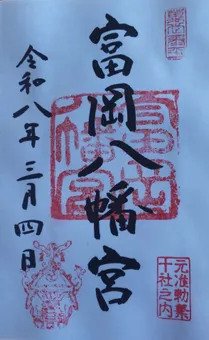 富岡八幡宮
令和八年三月四日
元准勅祭
十社之内